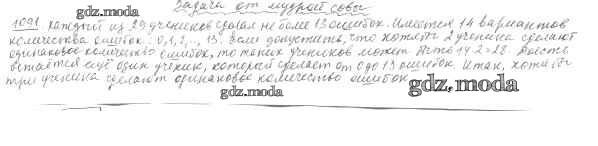 Задача от мудрой совы
1091 Каждый из 29 учеников сделал не более 13 ошибок. Имеется 14 вариантов
количества ошибок: 0, 1, 2, ..., 13. Если допустить, что хотя бы 2 ученика сделают
одинаковое количество ошибок, то таких учеников может быть 14·2=28. То есть
остаётся ещё один ученик, который сделает от 0 до 13 ошибок. Итак, хотя бы
три ученика сделают одинаковое количество ошибок.
gdz.moda
gdz.moda
gdz.moda
gdz.moda